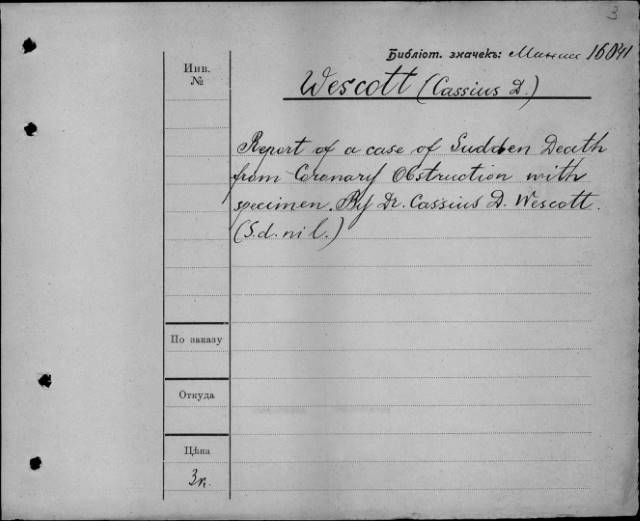 3
Библіот. значекъ: 16841
Инв.
№
Wescott (Cassius D.)
Report of a case of Sudden Death
from Coronary Obstruction with
specimen. By Dr. Cassius D. Wescott.
(S.d. nil.)
По заказу
Откуда
Цѣна
3к.